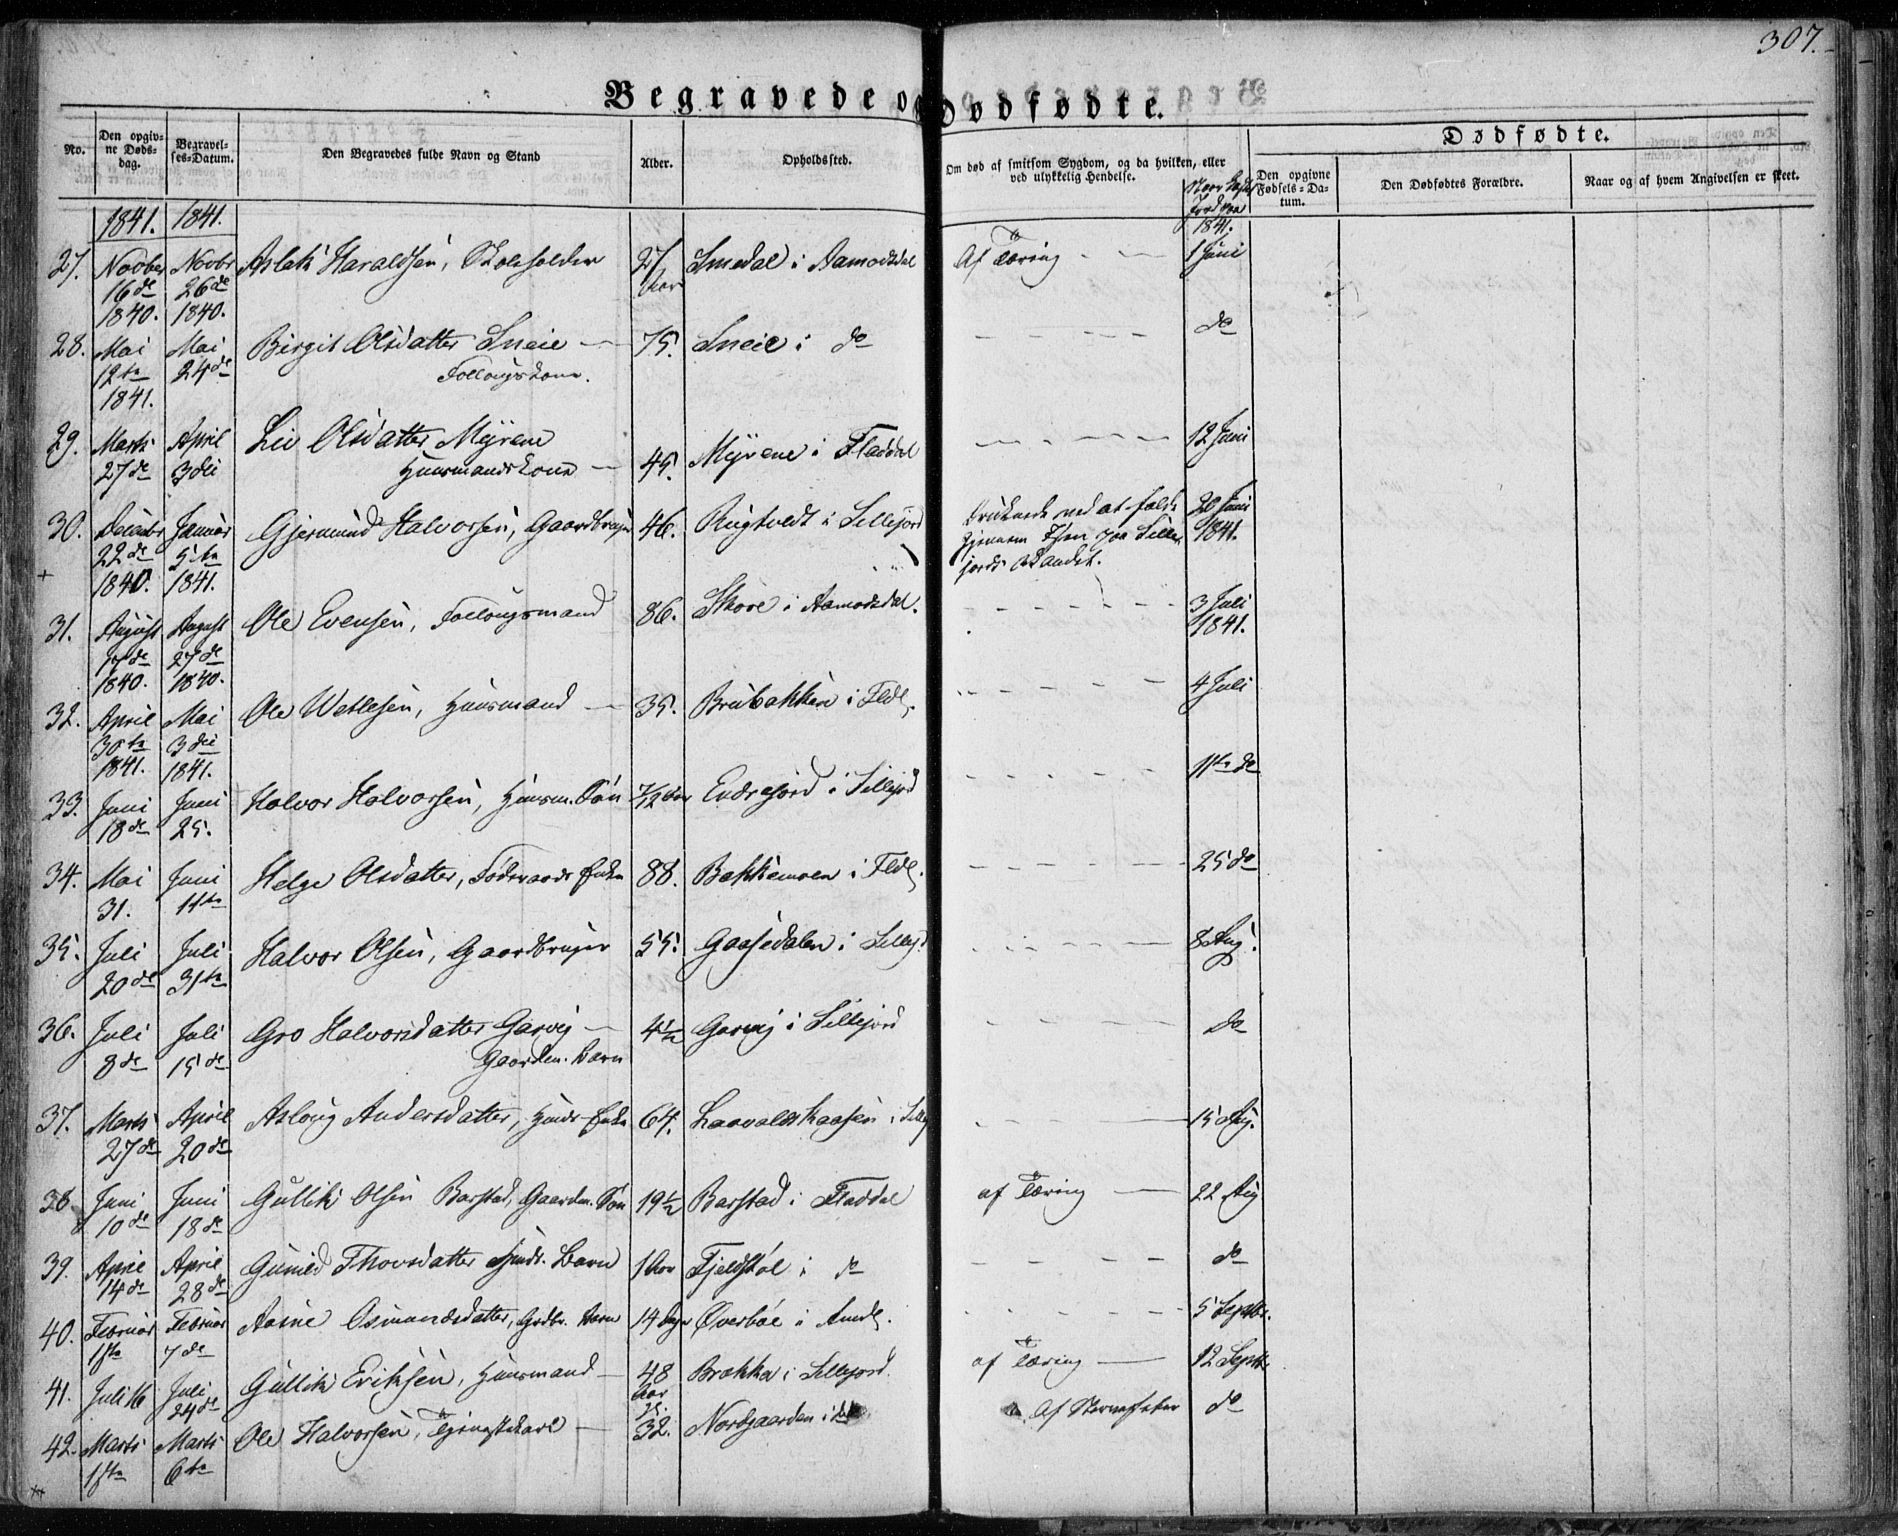 307.
Begravede o Dødfødte.
No. Den opgivne Døds-dag. Begravelses-Datum. Den Begravedes fulde Navn og Stand Alder. Opholdssted. Om død af smitsom Sygdom, og da hvilken, eller ved ulykkelig Hendelse. Dødfødte.
Den opgivne Fødsels-Datum. Den Dødfødtes Forældre. Naar og af hvem Angivelsen er skeet.
1841. 1841. 1841.
27. Novbr 16de 1840. Novbr 26de 1840. Aslak Haraldsen, Skoleholder 27 Aar Smedal i Aamodsdal Af Tæring 1 Juni
28. Mai 12te 1841. Mai 24de Birgit Olsdatter Sneie 75. Sneie i do do
Follougskone.
29. Marts 27de April 3die Liv Olsdatter Myrene 45. Myrene i Fladdal 12 Juni
Huusmandskone
30. Decbr 22de 1840. Januar 5te 1841. Gjermund Halvorsen, Gaardbruger 46. Rugtvedt i Sillejord Druknede ved at falde 20 Juni 1841.
gjennem Isen paa Sille-
jords Vandet.
31. August 17de 1840. August 27de 1840. Ole Evensen, Follougsmand 86. Skore i Aamodsdal. 3 Juli 1841.
32. April 30te 1841. Mai 3die 1841. Ole Wetlesen, Huusmand 35. Brubakken i Fldl. 4 Juli
33. Juni 18de Juni 25. Halvor Halvorsen, Huusm. Søn 7/12 Aar Endresjord i Sillejord 11te do
34. Mai 31. Juni 11te Helge Olsdatter, Føderaads Enke 88. Bakkemoen i Fldl. 25 do
35. Juli 20de Juli 31te Halvor Olsen, Gaardbruger 55. Gaasedalen i Sillejd. 8 Aug.
36. Juli 8de Juli 15de Gro Halvorsdatter Garvig 4½ Garvig i Sillejord do
Gaardm. Barn
37. Marts 27de April 20de Asloug Andersdatter, Huus Enke 64. Laavaldskaasen i Sillej 15 Aug.
38. Juni 10de Juni 18de Gullik Olsen Barstad, Gaardm. Søn 19½ Barstad i Fladdal af Tæring 22 Aug
39. April 14de April 28de Guneld Thorsdatter Huds. Barn 1 Aar Fjeldstøl i do do
40. Februar 1ste Februar 7de Aasne Osmundsdatter, Grdbr. Barn 14 Dage Øverbøe i Amdl. 5 Septbr.
41. Juli 16 Juli 24de Gullik Eriksen, Huusmand 48 Aar Brækka i Sillejord. af Tæring 12 Septbr.
42. Marts 1ste Marts 6te Ole Halvorsen, Tjenestekarl 32. Nordgaarden i do Af Nervefeber do